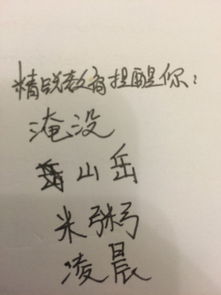 精锐教育提醒你：
淹没
山岳
米粥
凌晨